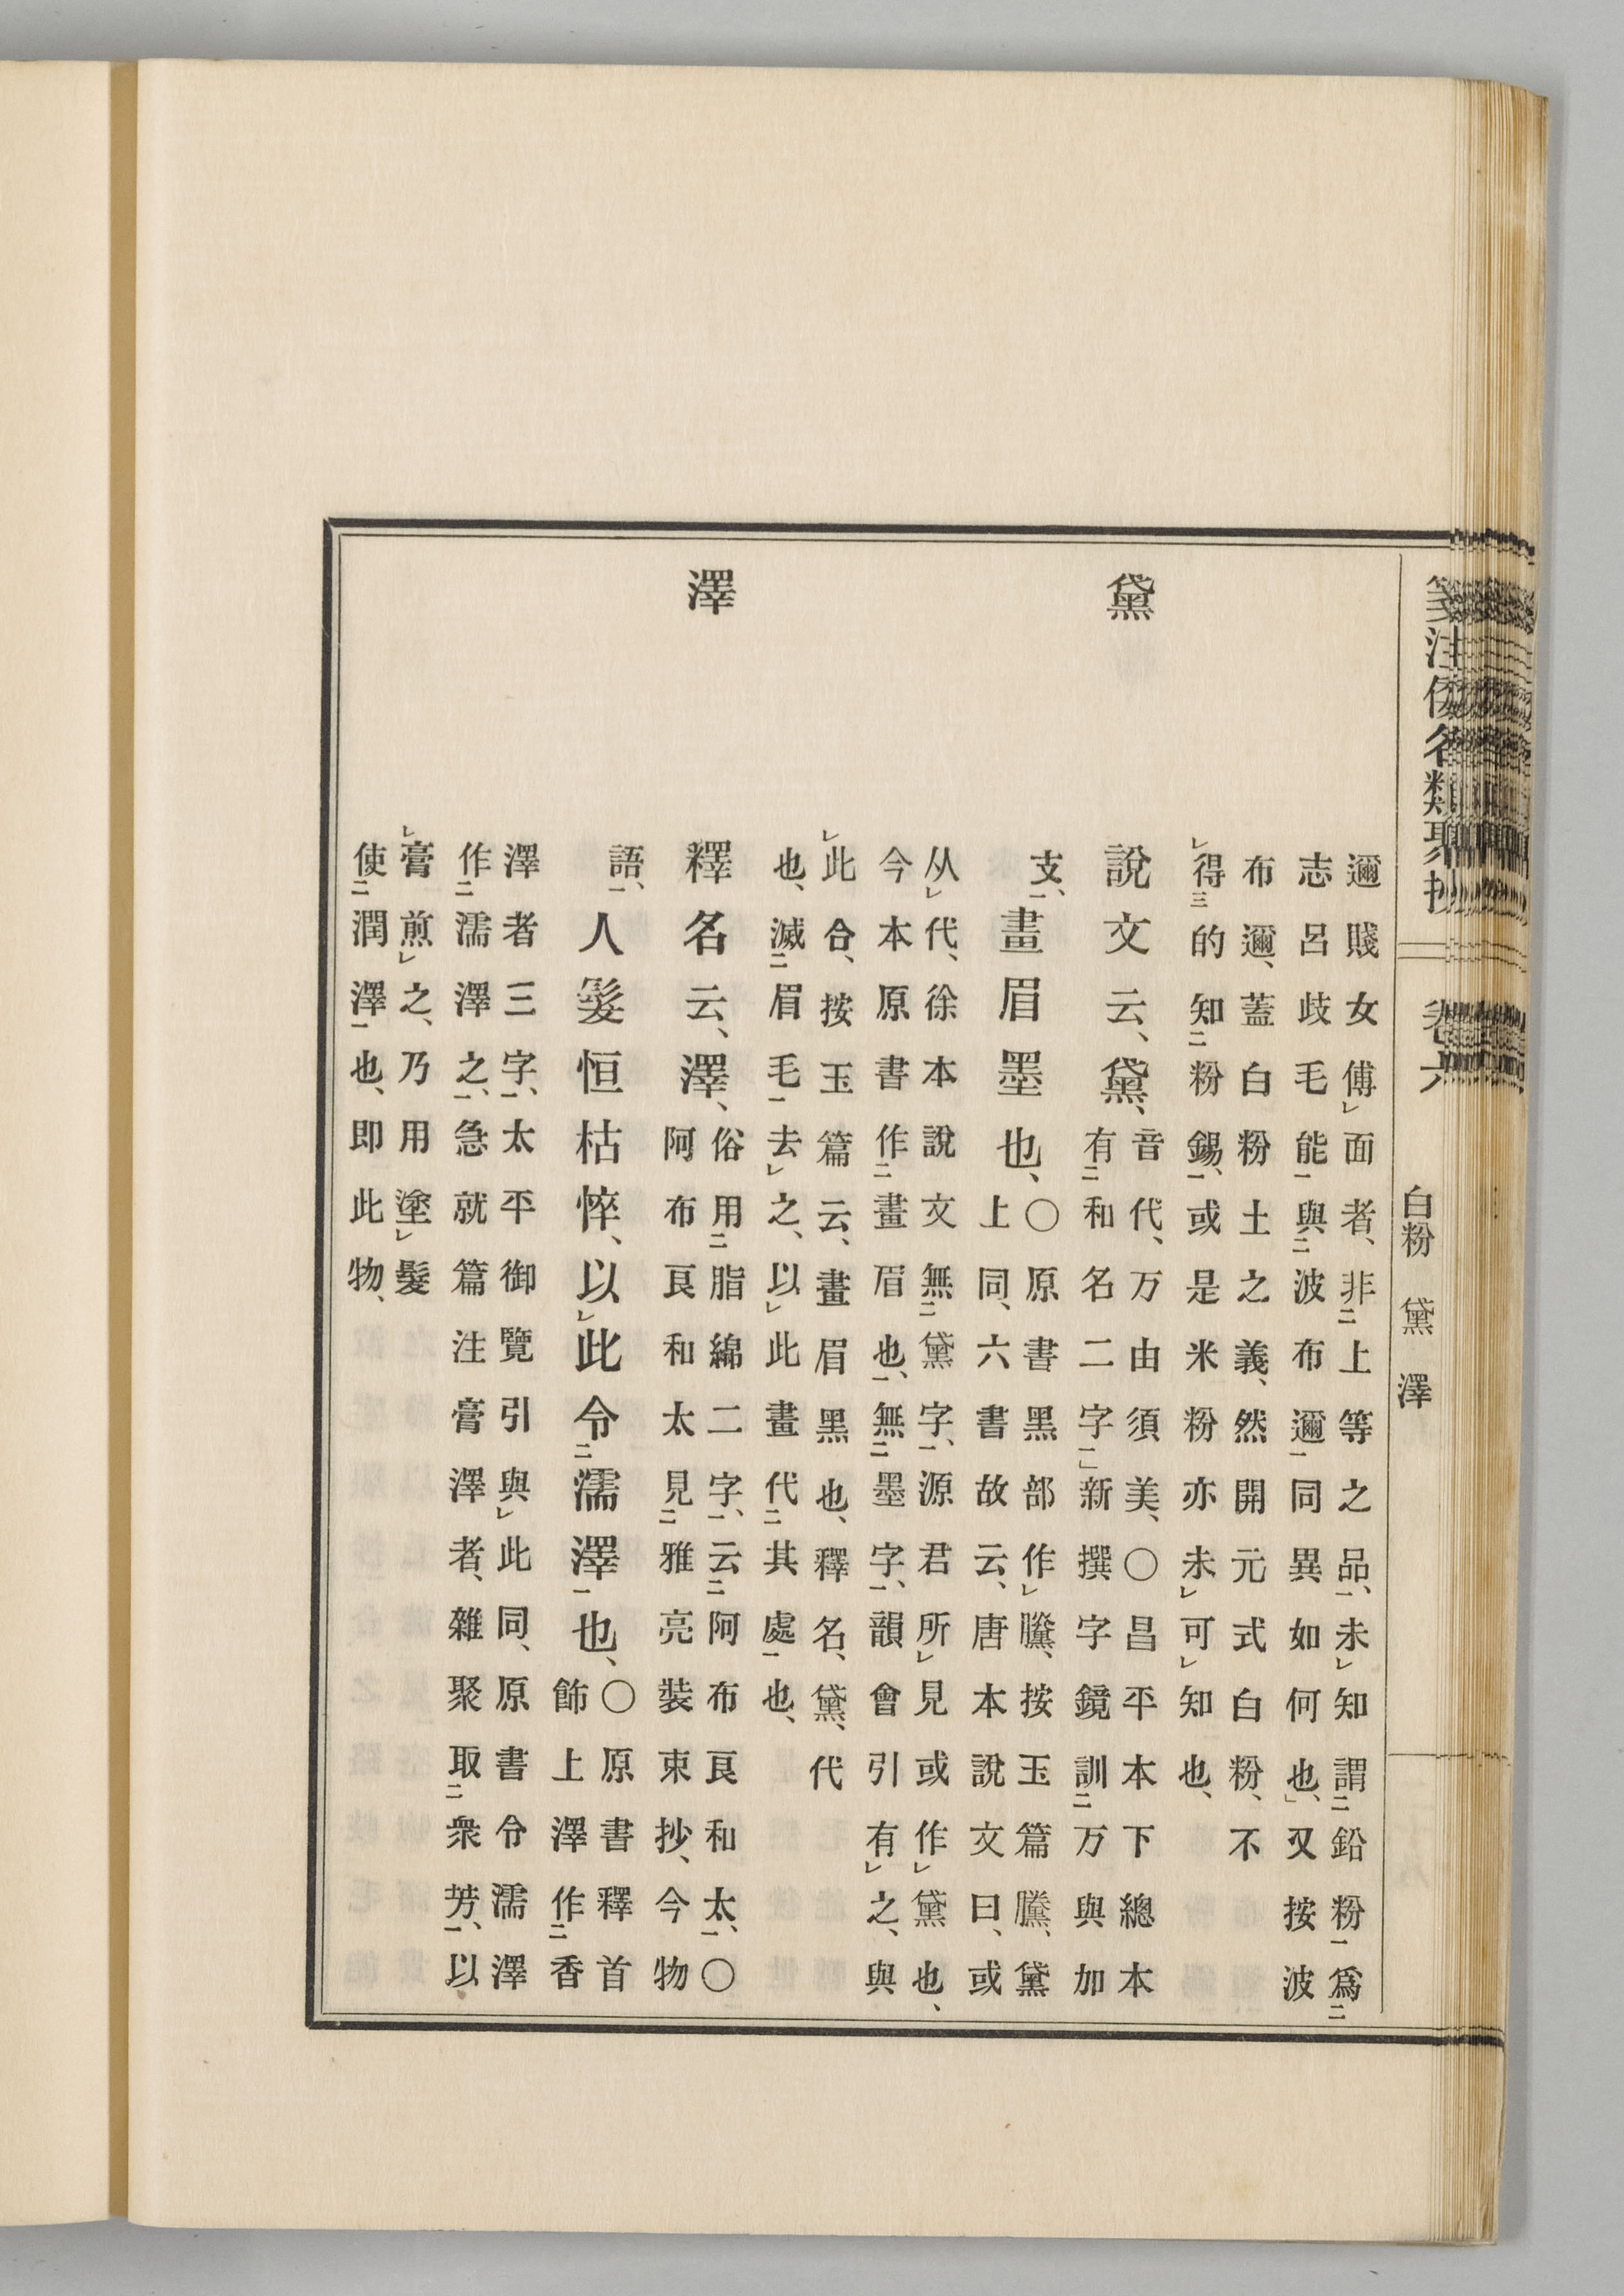 箋注倭名類聚抄 卷六 白粉 黛 澤
邇賤女傅面者、非上等之品、未知謂鉛粉爲
志呂歧毛能與波布邇同異如何也、」又按波
布邇、蓋白粉土之義、然開元式白粉、不
得的知粉錫、或是米粉亦未可知也、
黛
說文云、黛、
音代、万由須美、〇昌平本下總本
有和名二字」新撰字鏡訓万與加
支、畫眉墨也、
〇原書黑部作黱、按玉篇黱、黛
上同、六書故云、唐本說文曰、或
从代、徐本說文無黛字、源君所見或作黛也、
今本原書作畫眉也、無墨字、韻會引有之、與
此合、按玉篇云、畫眉黑也、釋名、黛、代
也、滅眉毛去之、以此畫代其處也、
澤
釋名云、澤、
俗用脂綿二字、云阿布良和太、〇
阿布良和太見雅亮裝束抄、今物
語、人髮恒枯悴、以此令濡澤也、
〇原書釋首
飾上澤作香
澤者三字、太平御覽引與此同、原書令濡澤
作濡澤之、急就篇注膏澤者、雜聚取衆芳、以
膏煎之、乃用塗髮
使潤澤也、即此物、